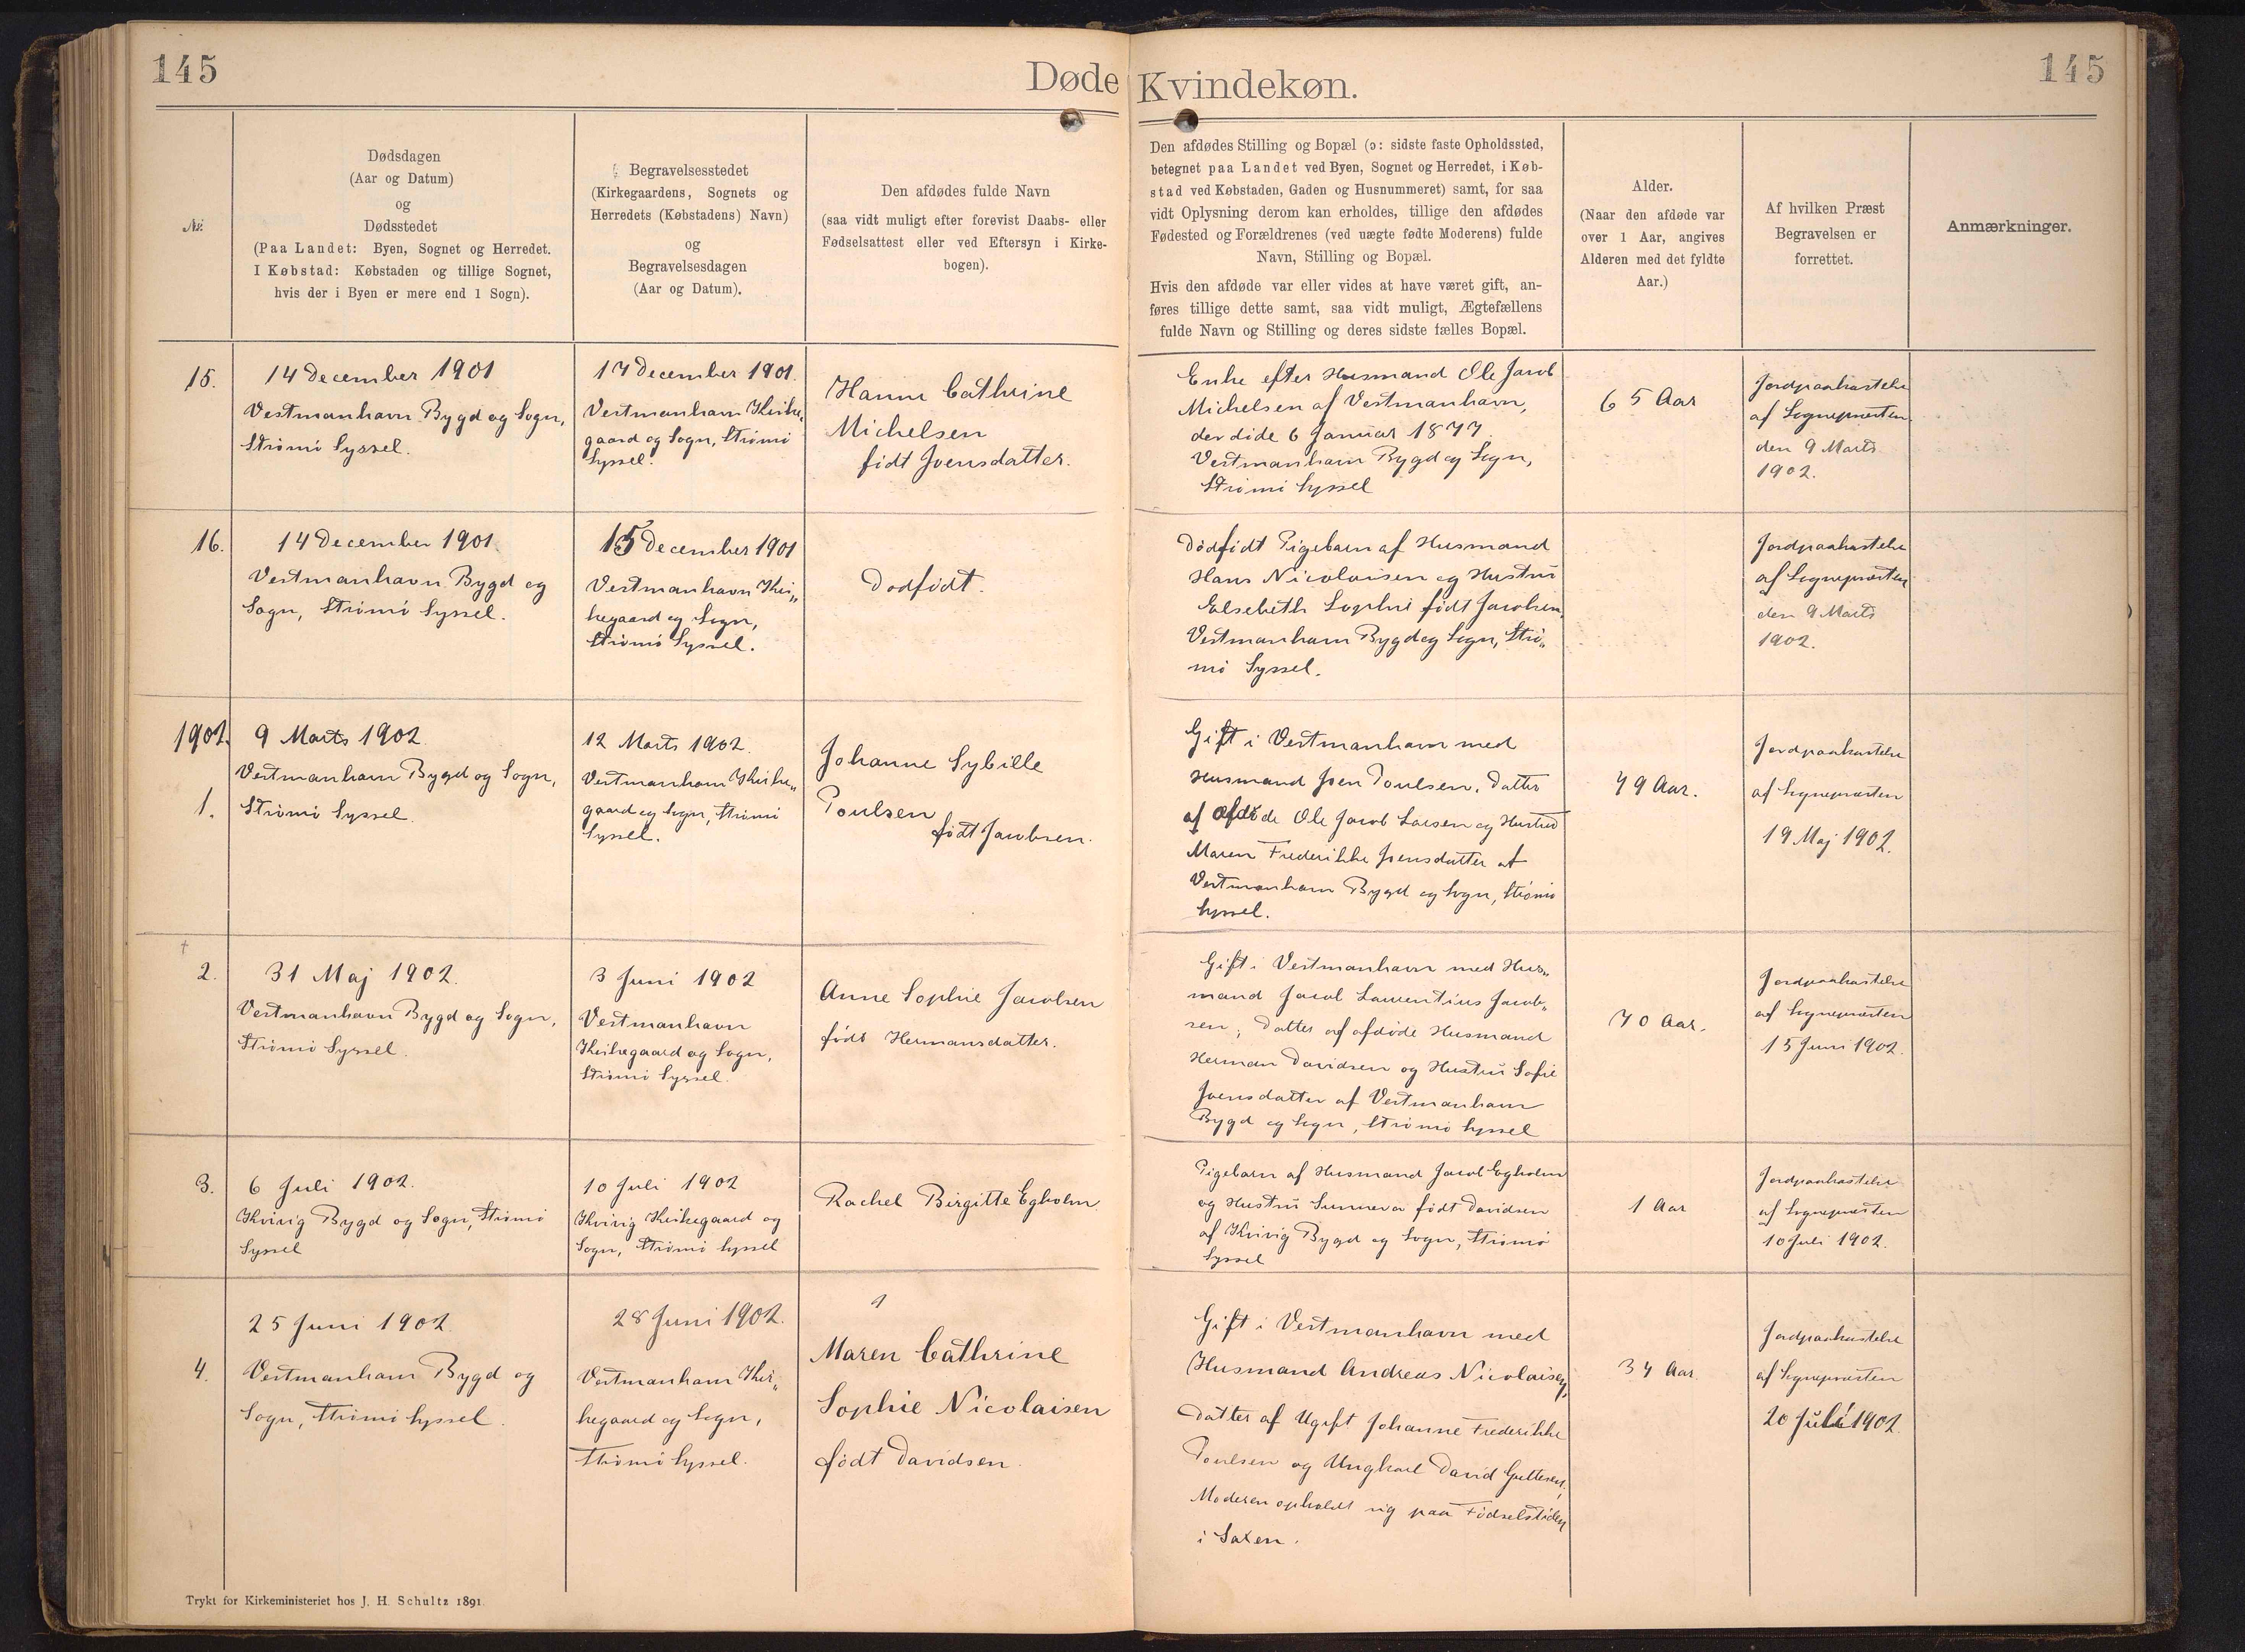 145
Døde
Kvindekøn.
145
№.
Dødsdagen
(Aar og Datum)
og
Dødsstedet
(Paa Landet: Byen, Sognet og Herredet.
I Købstad: Købstaden og tillige Sognet,
hvis der i Byen er mere end 1 Sogn).
Begravelsesstedet
(Kirkegaardens, Sognets og
Herredets (Købstadens) Navn)
og
Begravelsesdagen
(Aar og Datum).
Den afdødes fulde Navn
(saa vidt muligt efter forevist Daabs- eller
Fødselsattest eller ved Eftersyn i Kirke-
bogen).
Den afdødes Stilling og Bopæl (ɔ: sidste faste Opholdssted,
betegnet paa Landet ved Byen, Sognet og Herredet, i Køb-
stad ved Købstaden, Gaden og Husnummeret) samt, for saa
vidt Oplysning derom kan erholdes, tillige den afdødes
Fødested og Forældrenes (ved uægte fødte Moderens) fulde
Navn, Stilling og Bopæl.
Hvis den afdøde var eller vides at have været gift, an-
føres tillige dette samt, saa vidt muligt, Ægtefællens
fulde Navn og Stilling og deres sidste fælles Bopæl.
Alder.
(Naar den afdøde var
over 1 Aar, angives
Alderen med det fyldte
Aar.)
Af hvilken Præst
Begravelsen er
forrettet.
Anmærkninger.
15.
14 December 1901
Vestmanhavn Bygd og Sogn,
Strömö Syssel.
17 December 1901.
Vestmanhavn Kirke„
gaard og Sogn, Strömö
Syssel.
Hanne Cathrine
Michelsen
födt Joensdatter.
Enke efter Husmand Ole Jacob
Michelsen af Vestmanhavn,
der döde 6 Januar 1877
Vestmanhavn Bygd og Sogn,
Strömö Syssel
65 Aar
Jordpaakastelse
af Sognepræsten
den 9 Marts
1902.
16.
14 December 1901.
Vestmanhavn Bygd og
Sogn, Strömö Syssel.
15 December 1901
Vestmanhavn Kir„
kegaard og Sogn,
Strömö Syssel.
Dödfödt.
Dödfödt Pigebarn af Husmand
Hans Nicolaisen og Hustru
Elsebeth Sophie födt Jacobsen,
Vestmanhavn Bygd og Sogn, Strö„
mö Syssel.
Jordpaakastelse
af Sognepræsten
den 9 Marts
1902.
1902.
1.
9 Marts 1902
Vestmanhavn Bygd og Sogn,
Strömö Syssel.
12 Marts 1902.
Vestmanhavn Kirke„
gaard og Sogn, Strömö
Syssel.
Johanne Sybille
Poulsen
födt Jacobsen.
Gift i Vestmanhavn med
Husmand Joen Poulsen. Datter
af afdöde Ole Jacob Larsen og Hustru
Maren Frederikke Joensdatter af
Vestmanhavn Bygd og Sogn, Strömö
Syssel.
79 Aar.
Jordpaakastelse
af Sognepræsten
19 Maj 1902.
†
2.
31 Maj 1902.
Vestmanhavn Bygd og Sogn,
Strömö Syssel.
3 Juni 1902
Vestmanhavn
Kirkegaard og Sogn,
Strömö Syssel.
Anne Sophie Jacobsen
födt Hermansdatter.
Gift i Vestmanhavn med Hus„
mand Jacob Laurentius Jacob„
sen, Datter af afdöde Husmand
Herman Davidsen og Hustru Sofie
Joensdatter af Vestmanhavn
Bygd og Sogn, Strömö Syssel
70 Aar.
Jordpaakastelse
af Sognepræsten
15 Juni 1902.
3.
6 Juli 1902.
Kvivig Bygd og Sogn, Strömö
Syssel
10 Juli 1902
Kvivig Kirkegaard og
Sogn, Strömö Syssel
Rachel Birgitte Egholm
Pigebarn af Husmand Jacob Egholm
og Hustru Sunneva födt Davidsen
af Kvivig Bygd og Sogn, Strömö
Syssel
1 Aar
Jordpaakastelse
af Sognepræsten
10 Juli 1902.
4.
25 Juni 1902.
Vestmanhavn Bygd og
Sogn, Strömö Syssel.
28 Juni 1902.
Vestmanhavn Kir„
kegaard og Sogn,
Strömö Syssel.
Maren Cathrine
Sophie Nicolaisen
födt Davidsen.
Gift i Vestmanhavn med
Husmand Andreas Nicolaisen,
Datter af Ugift Johanne Frederikke
Poulsen og Ungkarl David Guttesen,
Moderen opholdt sig paa Födselstiden
i Saxen.
34 Aar.
Jordpaakastelse
af Sognepræsten
20 Juli 1902.
Trykt for Kirkeministeriet hos J. H. Schultz 1891.